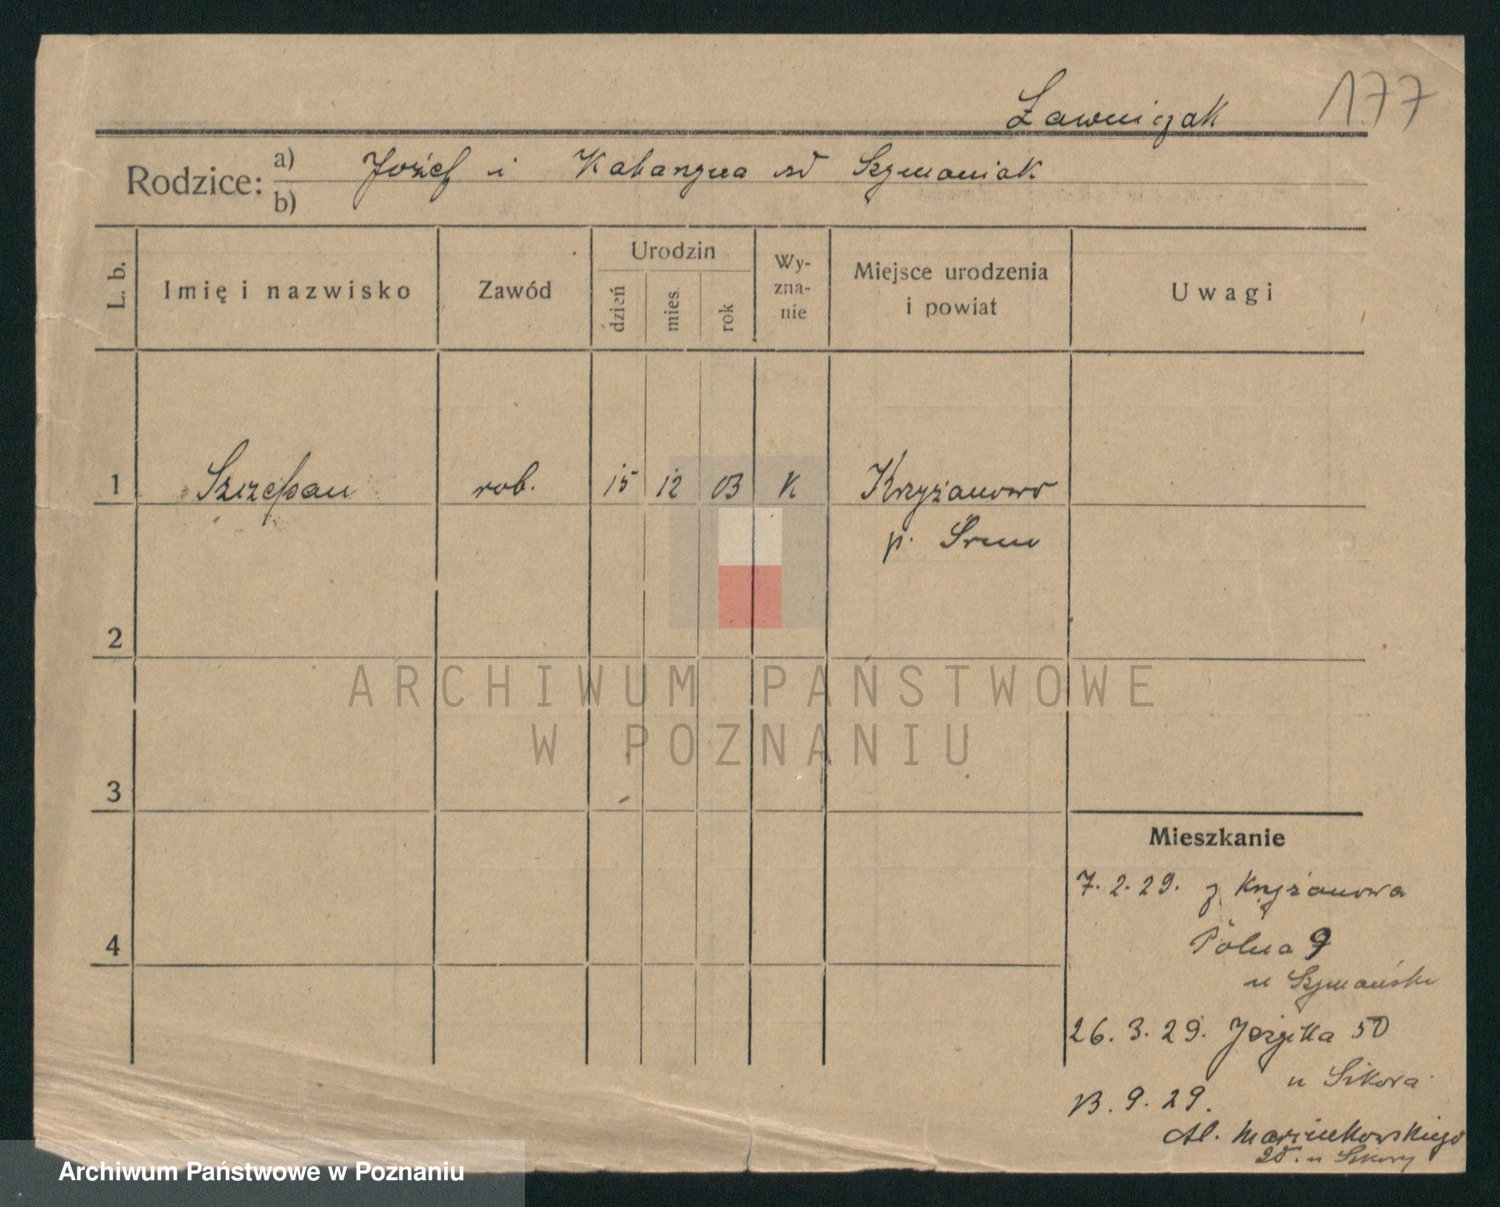 Ławniczak 177
Rodzice: a) Józef i Katarzyna zd Szymaniak
b)
L. b. Imię i nazwisko Zawód Urodzin dzień mies. rok Wy-zna-nie Miejsce urodzenia i powiat Uwagi
1 Szczepan rob. 15 12 03 K Krzyżanowo
p. Śrem
2
ARCHIWUM PAŃSTWOWE
W POZNANIU
3
Mieszkanie
7. 2. 29. z Krzyżanowa
4 Polna 9
u Szymański
26. 3. 29. Jeżycka 50
u Sikora
13. 9. 29.
Al. Marcinkowskiego
u Sikory
Archiwum Państwowe w Poznaniu